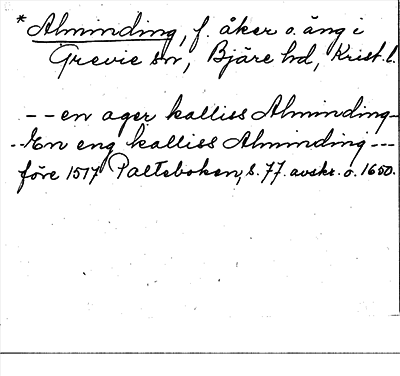 * Alminding, f. åker o. äng i
Grevie sn, Bjäre hd, Krist. l.
-- en ager kalliss Alminding -
-- En eng kalliss Alminding ---
före 1517 Palteboken, s. 77. avskr. o. 1650.